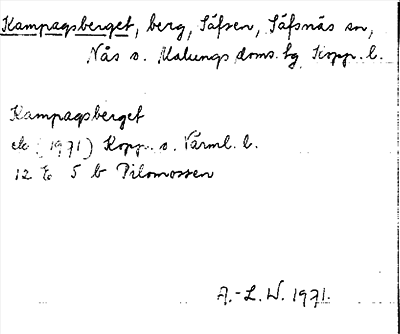 Kampagsberget, berg, Säfsen, Säfsnäs sn,
Nås o. Malungs doms. tg Kopp. l.
Kampagsberget
ek (1971) Kopp. o. Värml. l.
12 E 5 b Pilomossen
A.-L. W. 1971.